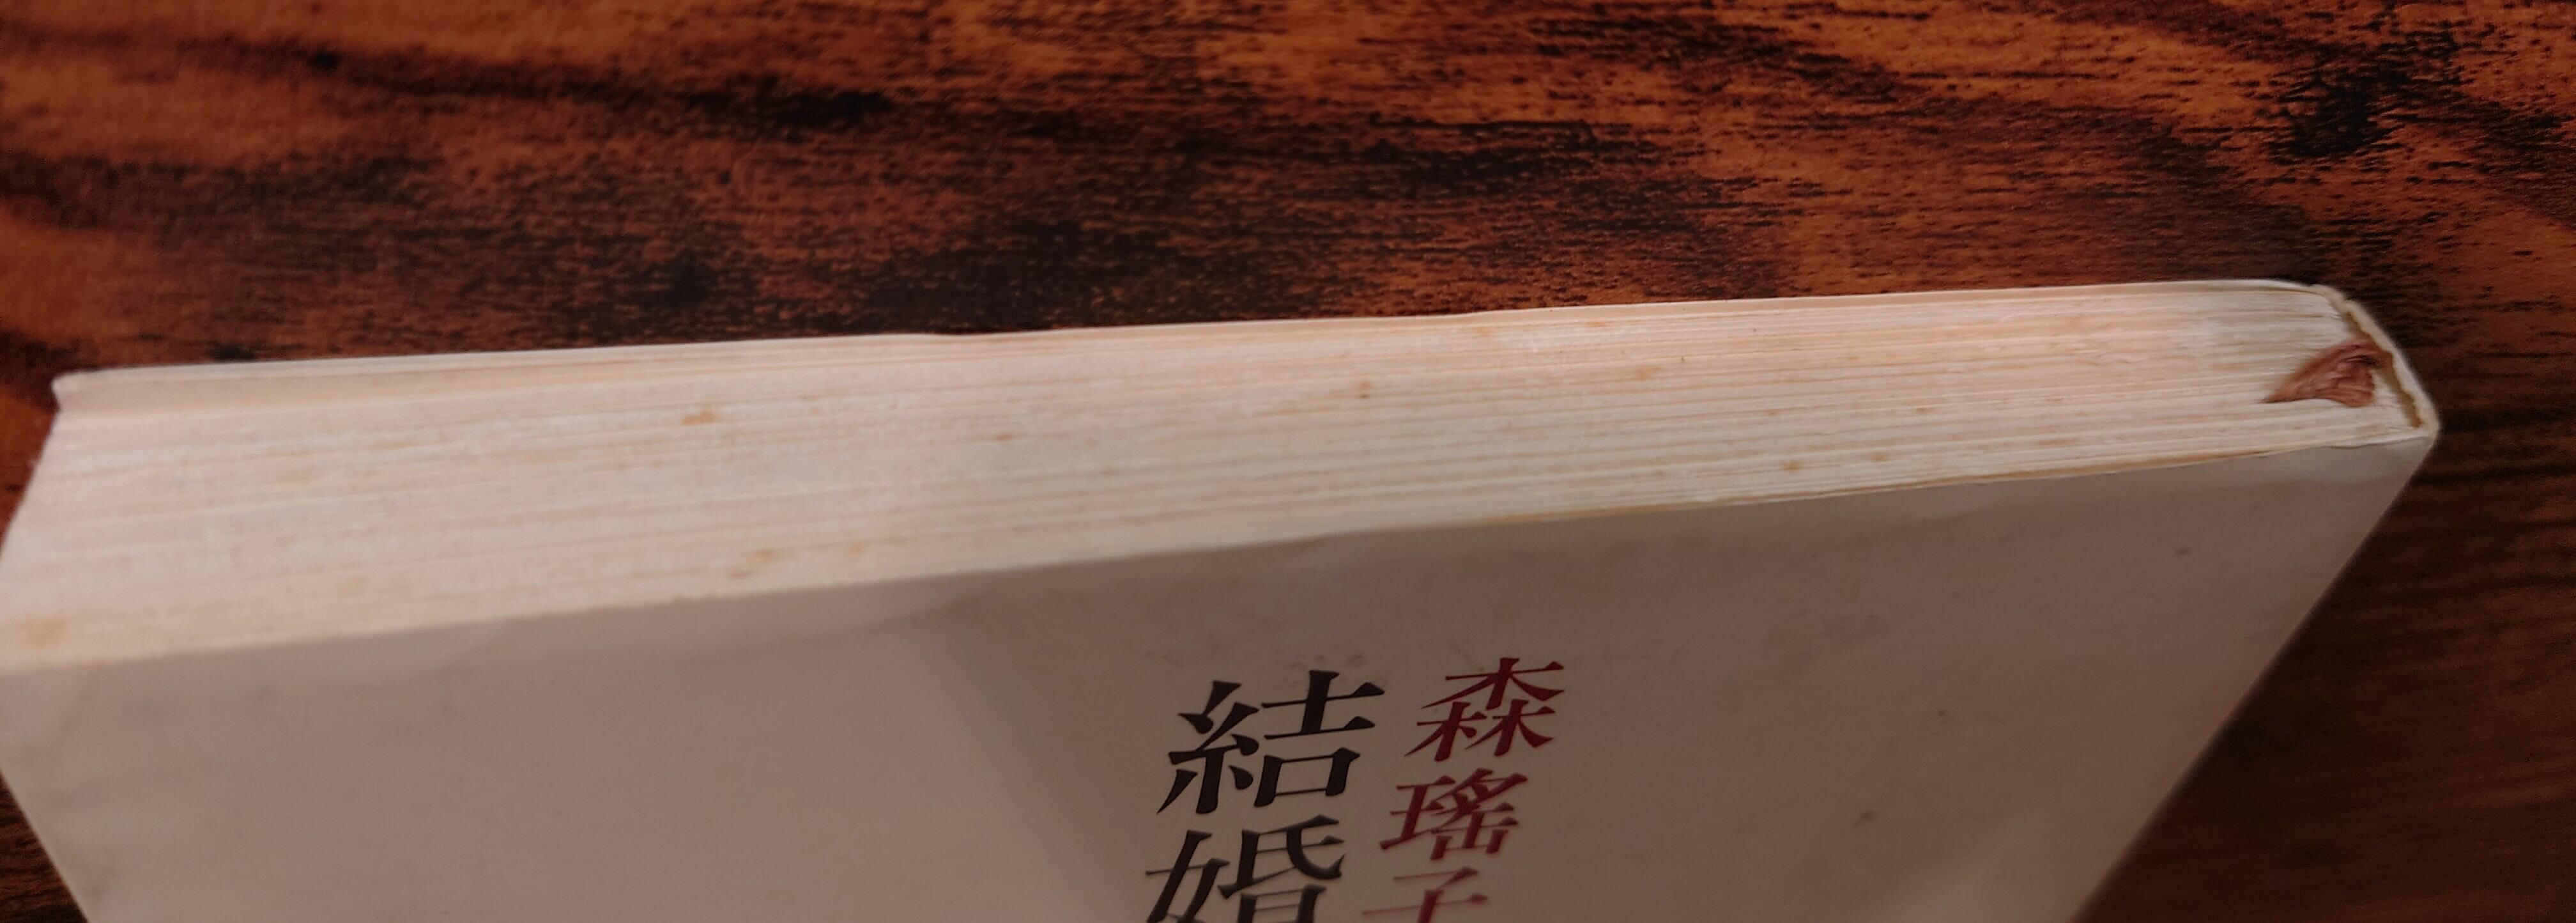 森瑤子
結婚